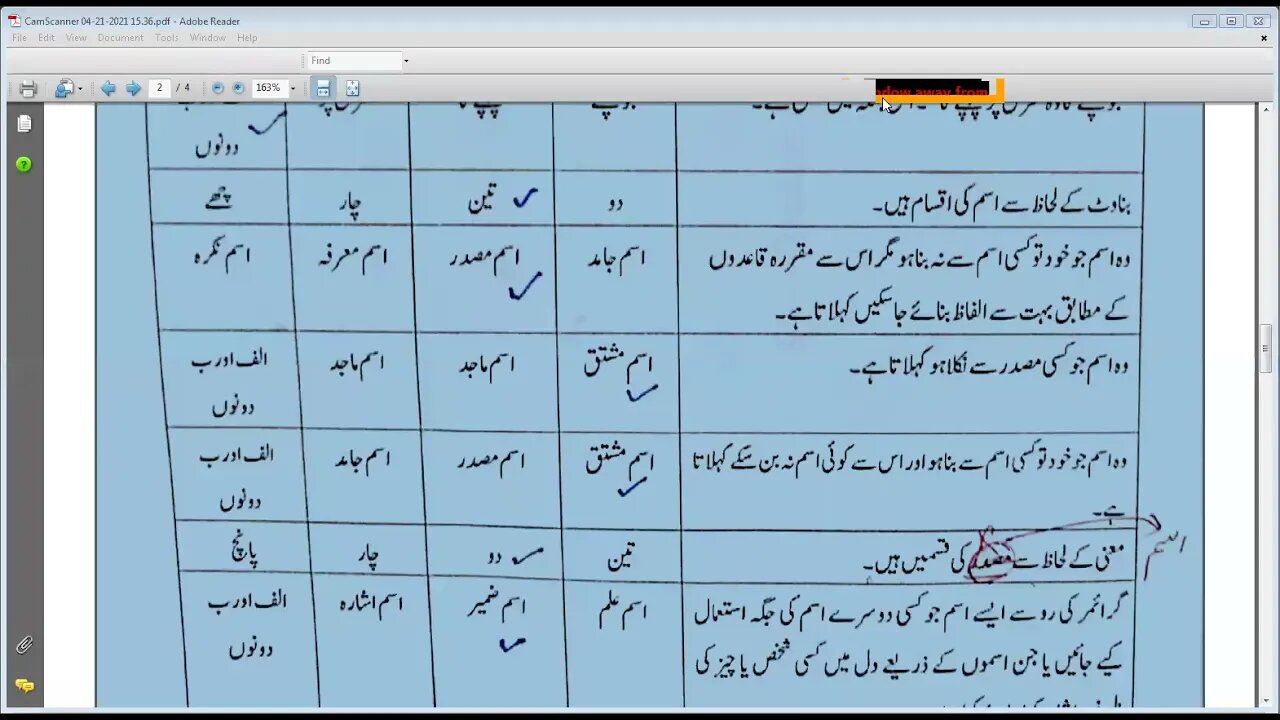 CamScanner 04-21-2021 15.36.pdf - Adobe Reader
File Edit View Document Tools Window Help
Find
2 / 163%
ndow away from
دونوں
بناوٹ کے لحاظ سے اسم کی اقسام ہیں۔ دو تین چار چھے
وہ اسم جو خود تو کسی اسم سے نہ بنا ہو مگر اس سے مقررہ قاعدوں اسم جامد اسم مصدر اسم معرفہ اسم نکرہ
کے مطابق بہت سے الفاظ بنائے جا سکیں کہلاتا ہے۔
وہ اسم جو کسی مصدر سے نکلا ہو کہلاتا ہے۔ اسم مشتق اسم ماجد اسم ماجد الف اور ب
دونوں
وہ اسم جو خود تو کسی اسم سے بنا ہو اور اس سے کوئی اسم نہ بن سکے کہلاتا اسم مشتق اسم مصدر اسم جامد الف اور ب
ہے۔ دونوں
معنی کے لحاظ سے مصدر کی قسمیں ہیں۔ تین دو چار پانچ
اسم
گرائمر کی رو سے ایسے اسم جو کسی دوسرے اسم کی جگہ استعمال اسم علم اسم ضمیر اسم اشارہ الف اور ب
کیے جائیں یا جن اسموں کے ذریعے دل میں کسی شخص یا چیز کی دونوں